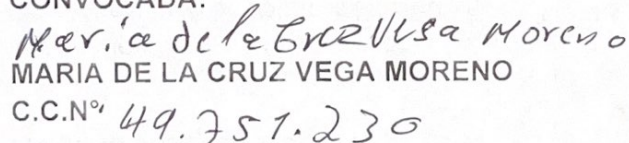 CONVOCADA:
Maria de la Cruz Vega Moreno
MARIA DE LA CRUZ VEGA MORENO
C.C.Nº, 49.751.230